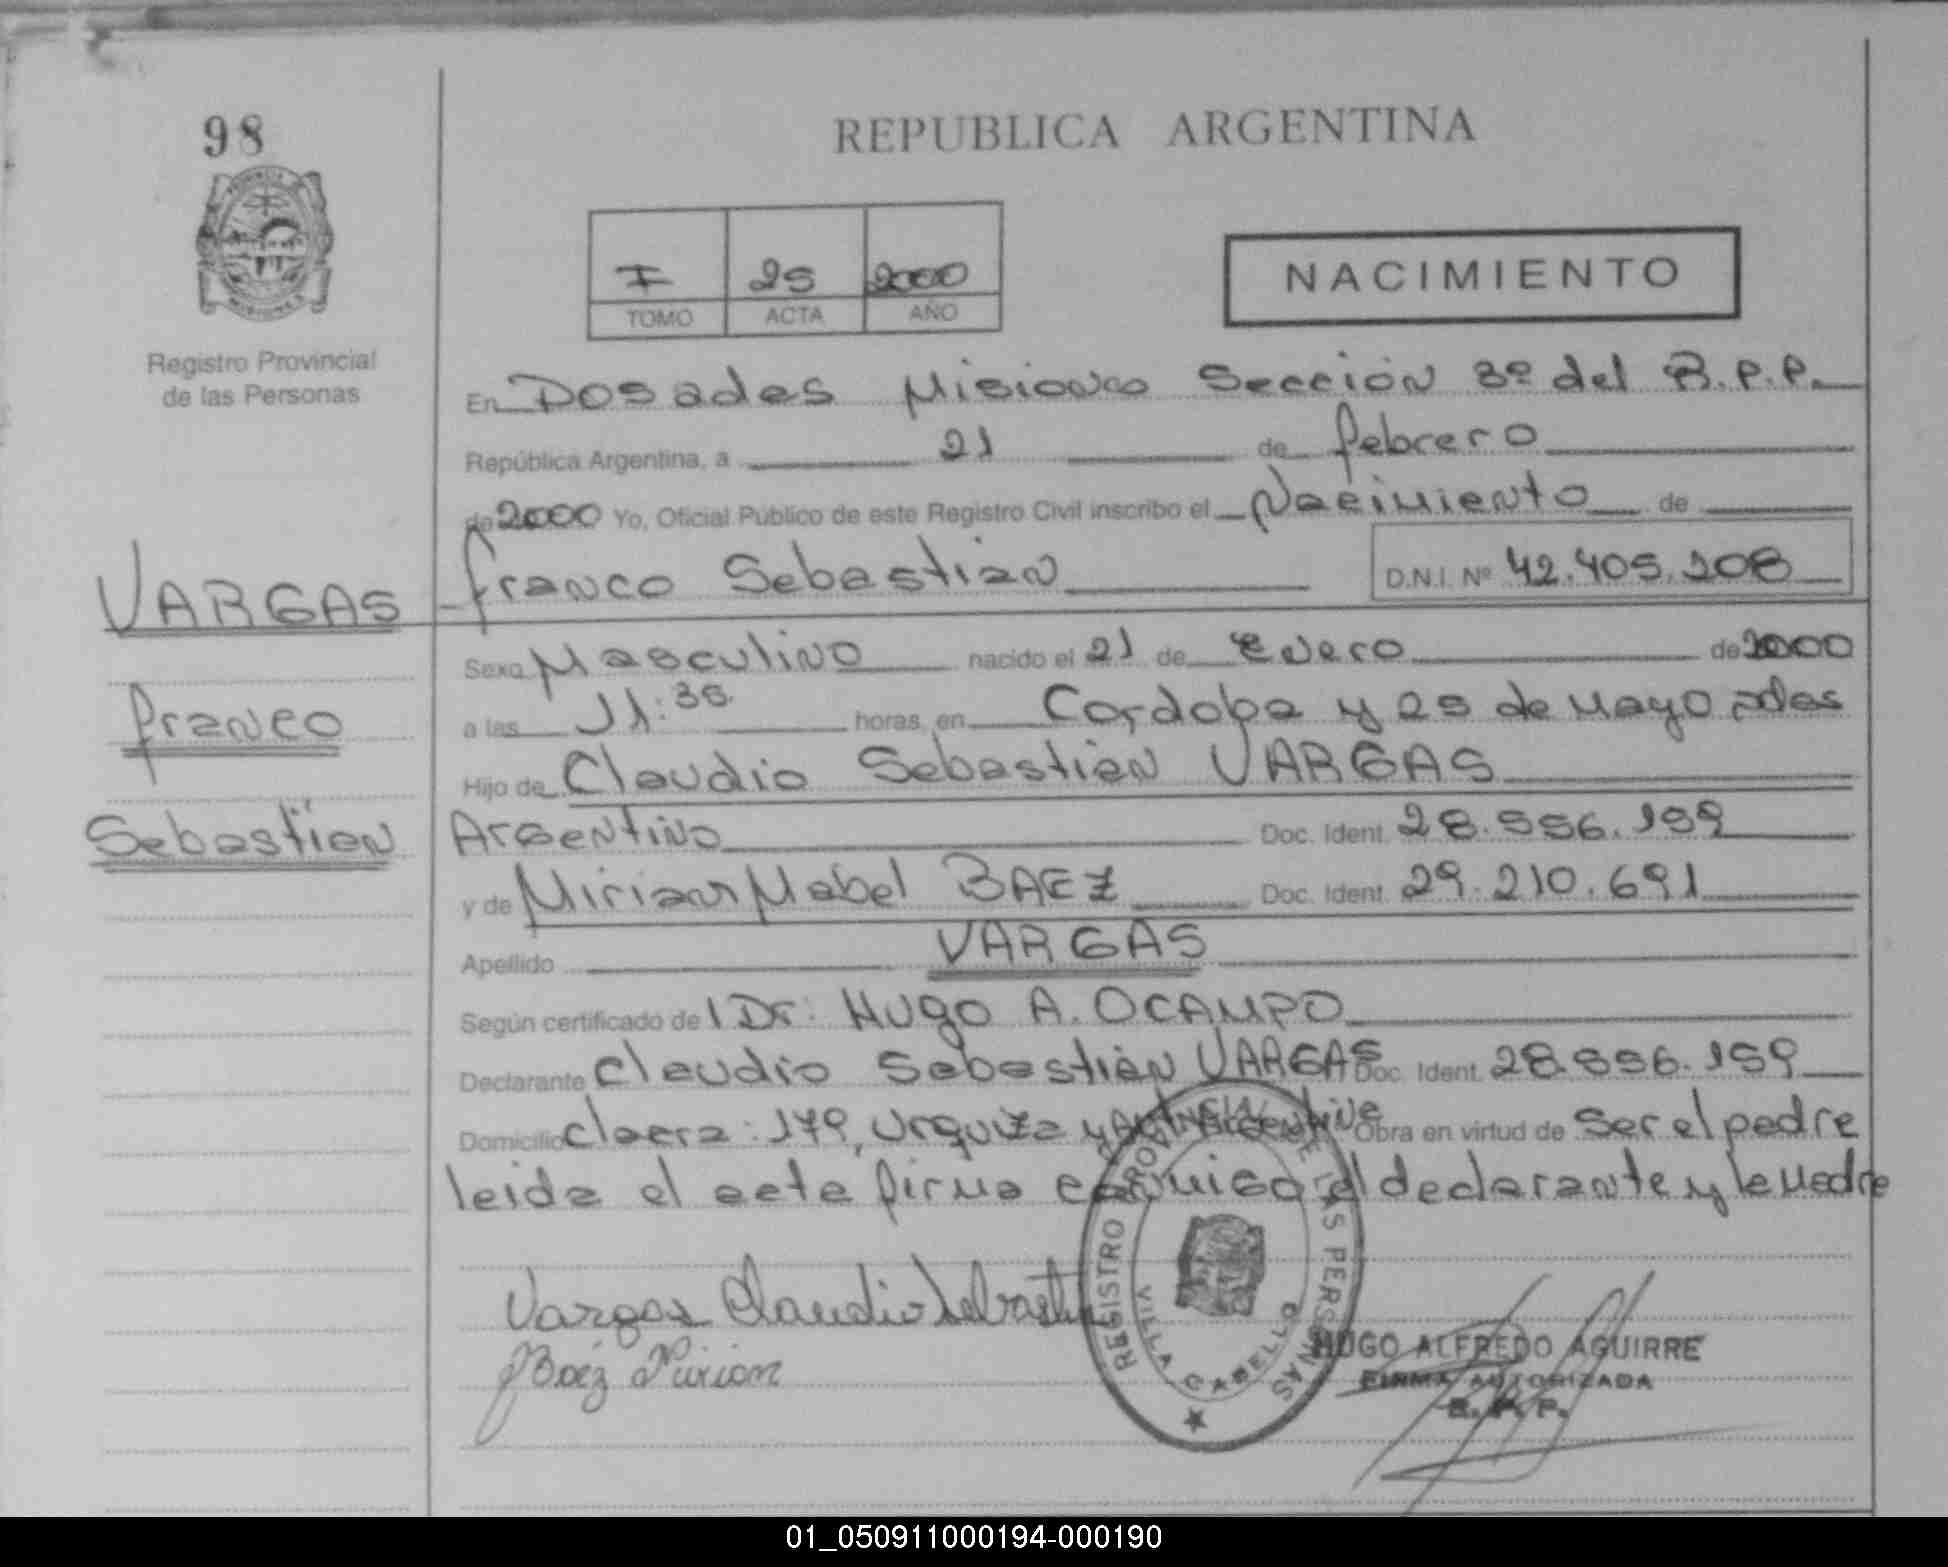 98
REPUBLICA ARGENTINA
I 25 2000
TOMO ACTA AÑO
NACIMIENTO
Registro Provincial
de las Personas
En Posadas Misiones Sección 3º del R.P.P.
República Argentina, a 21 de febrero
de 2000 Yo, Oficial Público de este Registro Civil inscribo el Nacimiento de
VARGAS
Franco Sebastián D.N.I. Nº 42.405.208
Sexo Masculino nacido el 21 de Enero de 2000
Franco
a las 11:35 horas, en Cordoba y 25 de Mayo
Hijo de Claudio Sebastián VARGAS
Sebastián
Argentino Doc. Ident. 28.556.159
y de Miriam Mabel BAEZ Doc. Ident. 29.210.691
Apellido VARGAS
Según certificado del Dr: HUGO A. OCAMPO
Declarante Claudio Sebastián VARGAS Doc. Ident. 28.556.159
Domicilio Chacra: 179, Urquiza y Obra en virtud de Ser el padre
leida el acta firma conmigo el declarante y la Madre
Vargas Claudio Sebastian
Baez Mirian
REGISTRO PROVINCIAL DE LAS PERSONAS
VILLA CABELLO
HUGO ALFREDO AGUIRRE
FIRMA AUTORIZADA
R. P. P.
01_050911000194-000190